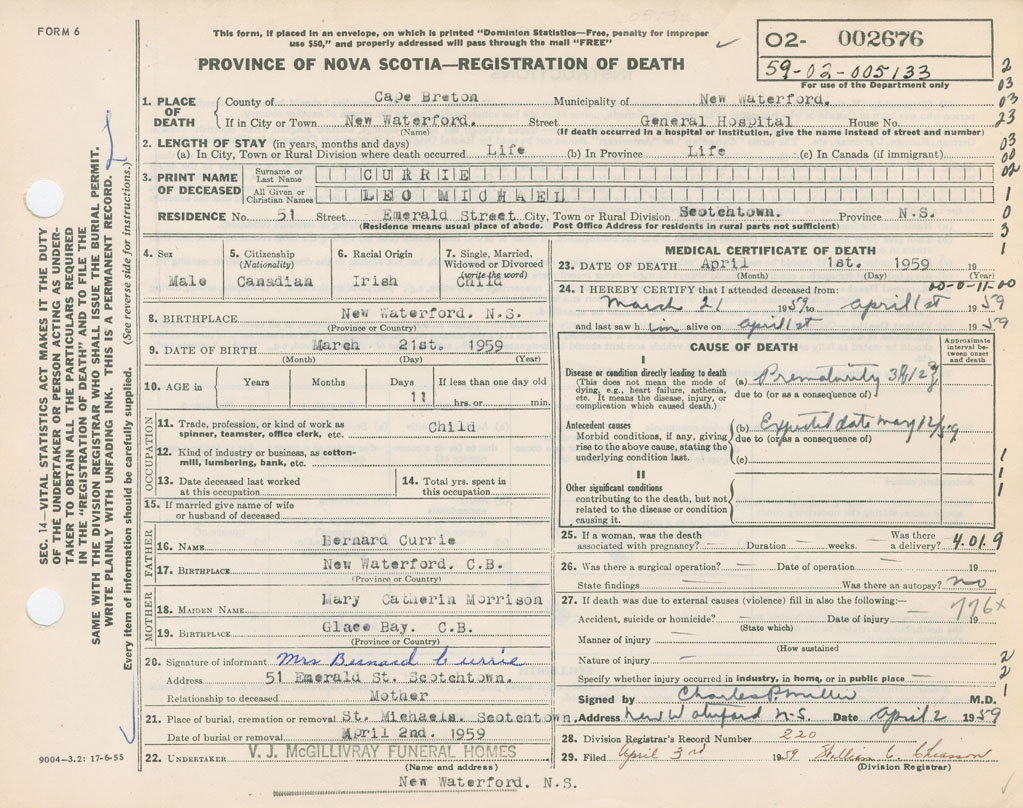 FORM 6
This form, if placed in an envelope, on which is printed "Dominion Statistics—Free, penalty for improper
use $50," and properly addressed will pass through the mail "FREE"
PROVINCE OF NOVA SCOTIA—REGISTRATION OF DEATH
02- 002676
59-02-005133
For use of the Department only
1. PLACE OF DEATH
County of Cape Breton Municipality of New Waterford.
If in City or Town New Waterford. Street General Hospital House No.
(Name) (If death occurred in a hospital or institution, give the name instead of street and number)
2. LENGTH OF STAY (in years, months and days)
(a) In City, Town or Rural Division where death occurred Life (b) In Province Life (c) In Canada (if immigrant)
3. PRINT NAME OF DECEASED
Surname or Last Name CURRIE
All Given or Christian Names LEO MICHAEL
RESIDENCE No. 51 Street Emerald Street City, Town or Rural Division Scotchtown. Province N.S.
(Residence means usual place of abode. Post Office Address for residents in rural parts not sufficient)
2
03
03
23
03
00
02
1
0
3
1
4. Sex
Male
5. Citizenship (Nationality)
Canadian
6. Racial Origin
Irish
7. Single, Married, Widowed or Divorced (write the word)
Child
8. BIRTHPLACE New Waterford. N.S.
(Province or Country)
9. DATE OF BIRTH March 21st. 1959
(Month) (Day) (Year)
10. AGE in Years Months Days If less than one day old
11 hrs. or min.
OCCUPATION
11. Trade, profession, or kind of work as Child
spinner, teamster, office clerk, etc.
12. Kind of industry or business, as cotton-
mill, lumbering, bank, etc.
13. Date deceased last worked
at this occupation
14. Total yrs. spent in
this occupation
15. If married give name of wife
or husband of deceased
FATHER
16. NAME Bernard Currie
17. BIRTHPLACE New Waterford. C.B.
(Province or Country)
MOTHER
18. MAIDEN NAME Mary Catherin Morrison
19. BIRTHPLACE Glace Bay. C.B.
(Province or Country)
20. Signature of informant Mrs Bernard Currie
Address 51 Emerald St. Scotchtown.
Relationship to deceased Mother
21. Place of burial, cremation or removal St. Michaels. Scotchtown.
Date of burial or removal April 2nd. 1959
22. UNDERTAKER V. J. McGILLIVRAY FUNERAL HOMES
(Name and address)
New Waterford. N.S.
9004-3.2: 17-6-55
MEDICAL CERTIFICATE OF DEATH
23. DATE OF DEATH April 1st. 1959 19
(Month) (Day) (Year)
24. I HEREBY CERTIFY that I attended deceased from: 00-0-11-00
March 21 1959 to April 1st 1959
and last saw him alive on April 1st 1959
CAUSE OF DEATH
Approximate interval between onset and death
I
Disease or condition directly leading to death
(This does not mean the mode of
dying, e.g., heart failure, asthenia,
etc. It means the disease, injury, or
complication which caused death.)
(a) Prematurity
due to (or as a consequence of)
Antecedent causes
Morbid conditions, if any, giving
rise to the above cause, stating the
underlying condition last.
(b) Expected date May 12/59
due to (or as a consequence of)
(c)
II
Other significant conditions
contributing to the death, but not
related to the disease or condition
causing it.
1
1
1
25. If a woman, was the death Was there
associated with pregnancy? Duration weeks. a delivery? 4.01.9
26. Was there a surgical operation? Date of operation 19
State findings Was there an autopsy? no
27. If death was due to external causes (violence) fill in also the following:—
776x
Accident, suicide or homicide? Date of injury 19
(State which)
Manner of injury
(How sustained
Nature of injury
Specify whether injury occurred in industry, in home, or in public place
2
2
1
Signed by Charles P. Miller M.D.
Address New Waterford N.S. Date April 2 1959
28. Division Registrar's Record Number 220
29. Filed April 3rd 1959
(Division Registrar)
SEC. 14—VITAL STATISTICS ACT MAKES IT THE DUTY
OF THE UNDERTAKER OR PERSON ACTING AS UNDER-
TAKER TO OBTAIN ALL THE PARTICULARS REQUIRED
IN THE "REGISTRATION OF DEATH" AND TO FILE THE
SAME WITH THE DIVISION REGISTRAR WHO SHALL ISSUE THE BURIAL PERMIT.
WRITE PLAINLY WITH UNFADING INK. THIS IS A PERMANENT RECORD.
Every item of information should be carefully supplied. (See reverse side for instructions.)